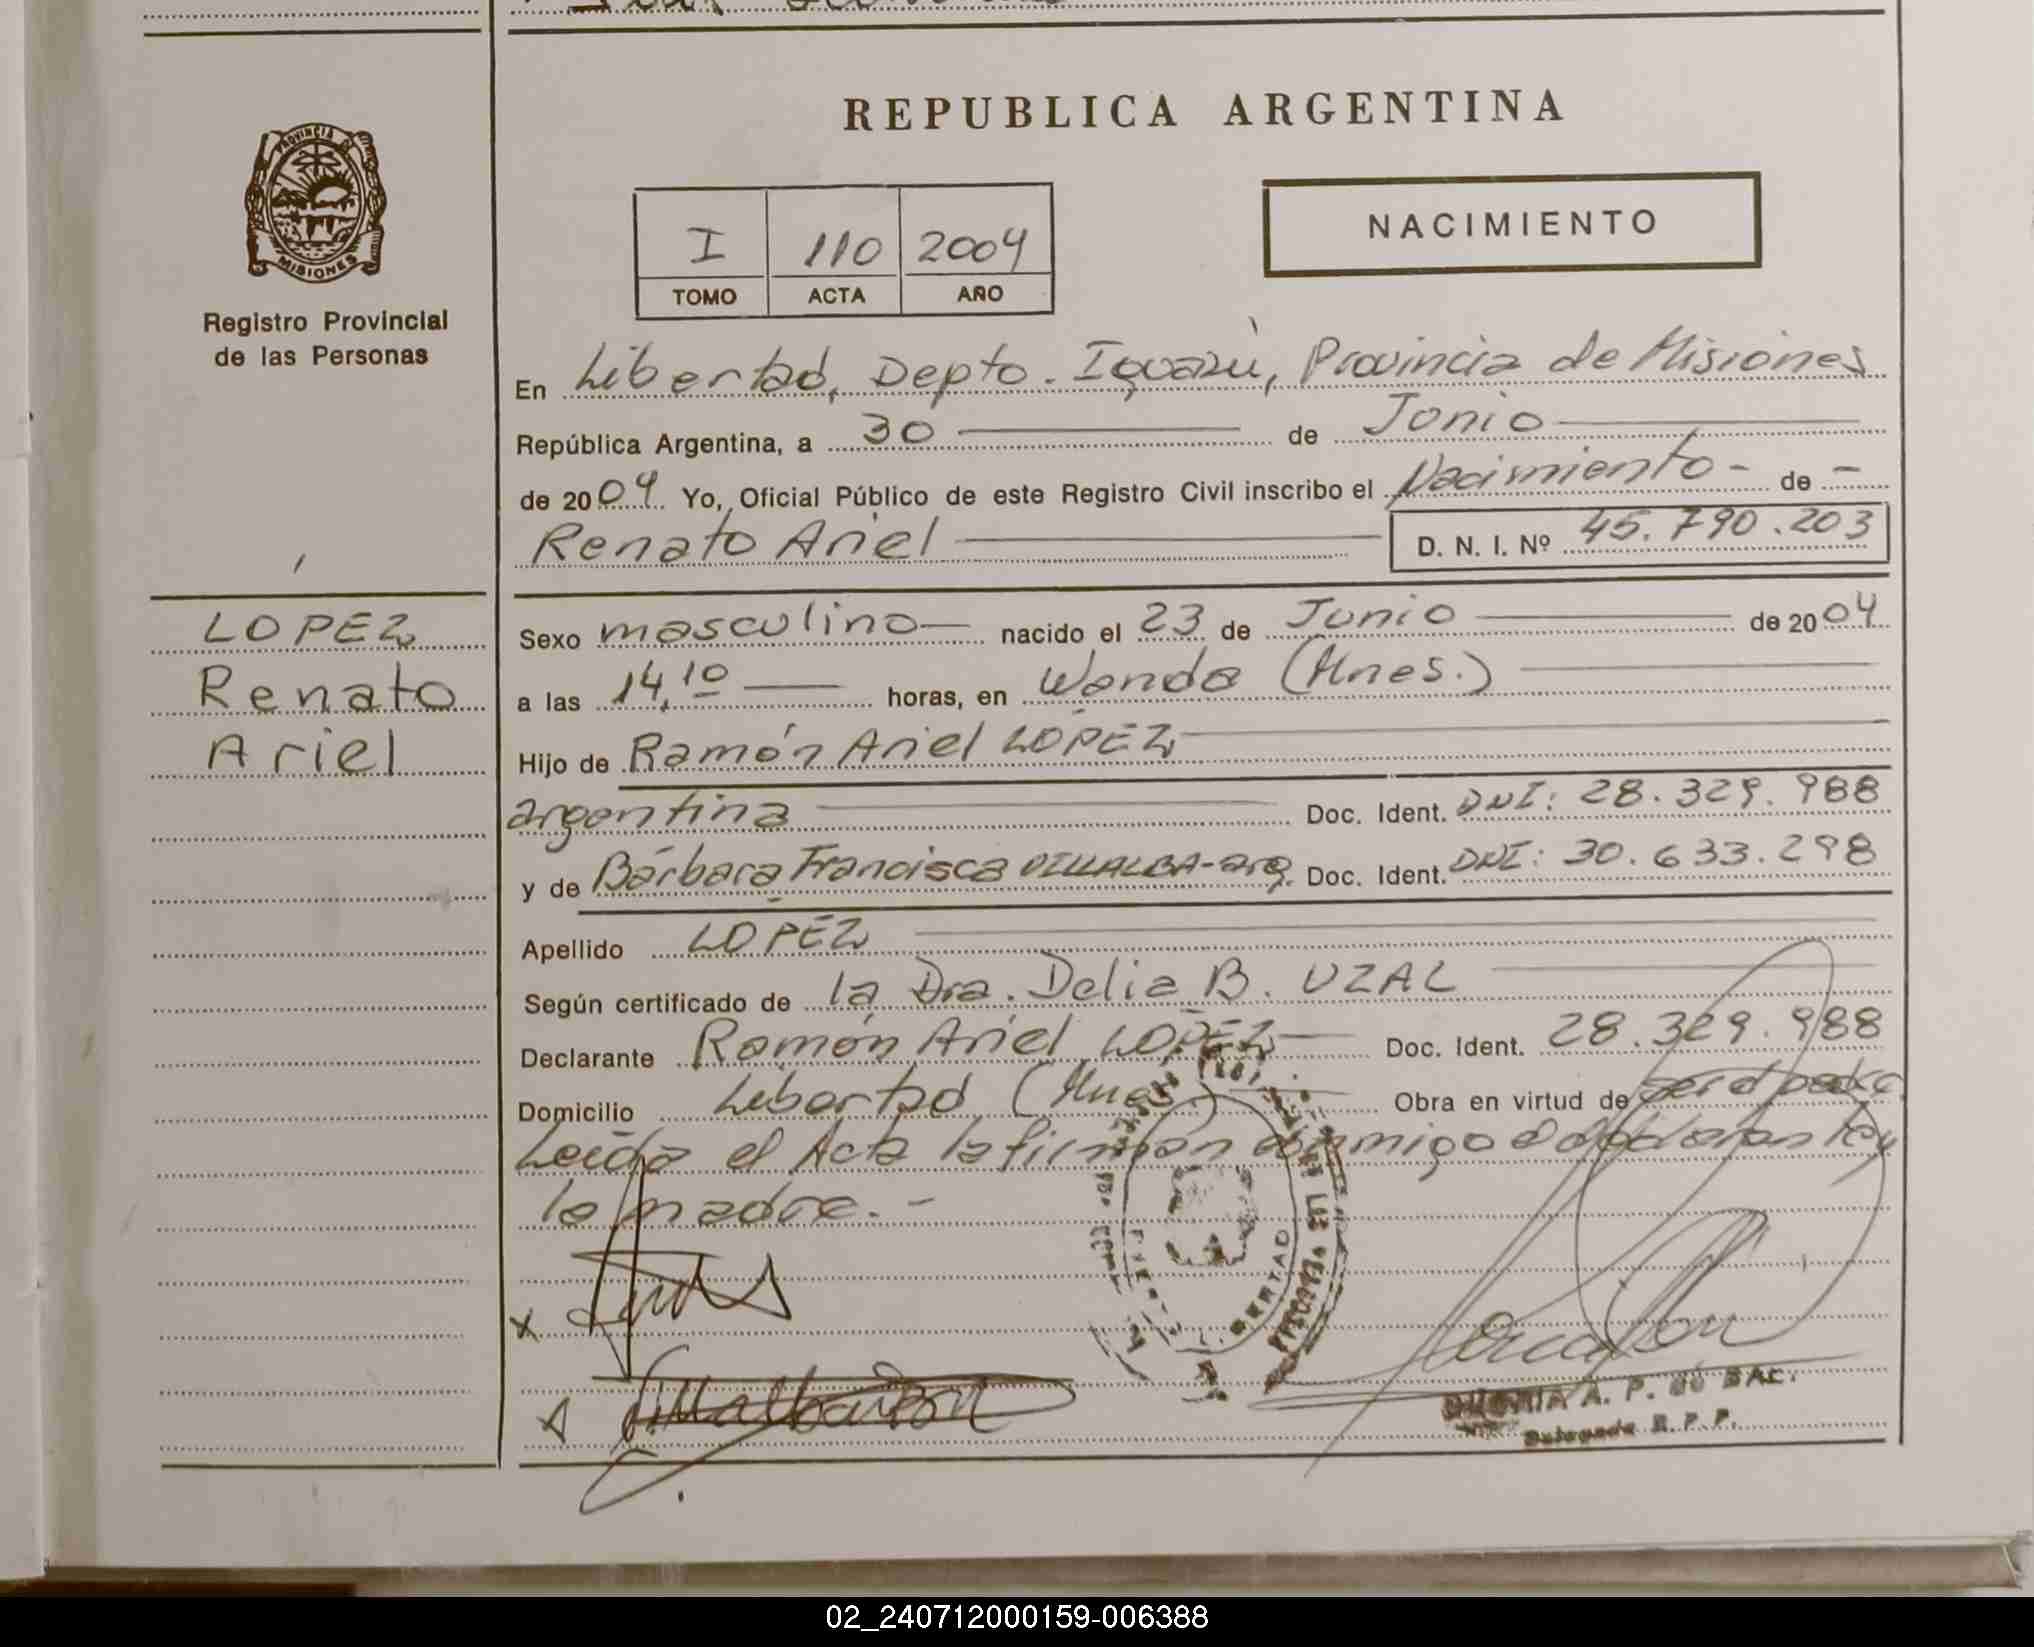 REPUBLICA ARGENTINA
PROVINCIA DE
MISIONES
Registro Provincial
de las Personas
I 110 2004
TOMO ACTA AÑO
NACIMIENTO
En Libertad, Depto. Iguazú, Provincia de Misiones
República Argentina, a 30 de Junio
de 2004 Yo, Oficial Público de este Registro Civil inscribo el Nacimiento - de -
Renato Ariel D. N. I. Nº 45.790.203
LOPEZ
Renato
Ariel
Sexo masculino nacido el 23 de Junio de 2004
a las 14,10 horas, en Wanda (Mnes.)
Hijo de Ramón Ariel LOPEZ
argentina Doc. Ident. DNI: 28.329.988
y de Bárbara Francisca VILLALBA-arg. Doc. Ident. DNI: 30.633.298
Apellido LOPEZ
Según certificado de la Dra. Delia B. UZAL
Declarante Ramón Ariel LOPEZ Doc. Ident. 28.329.988
Domicilio Libertad (Mnes.) Obra en virtud de ser el padre
Leída el Acta la firman conmigo el declarante y
la madre. -
X
LIBERTAD
A. P. de BAC.
Delegada R. P. P.
02_240712000159-006388